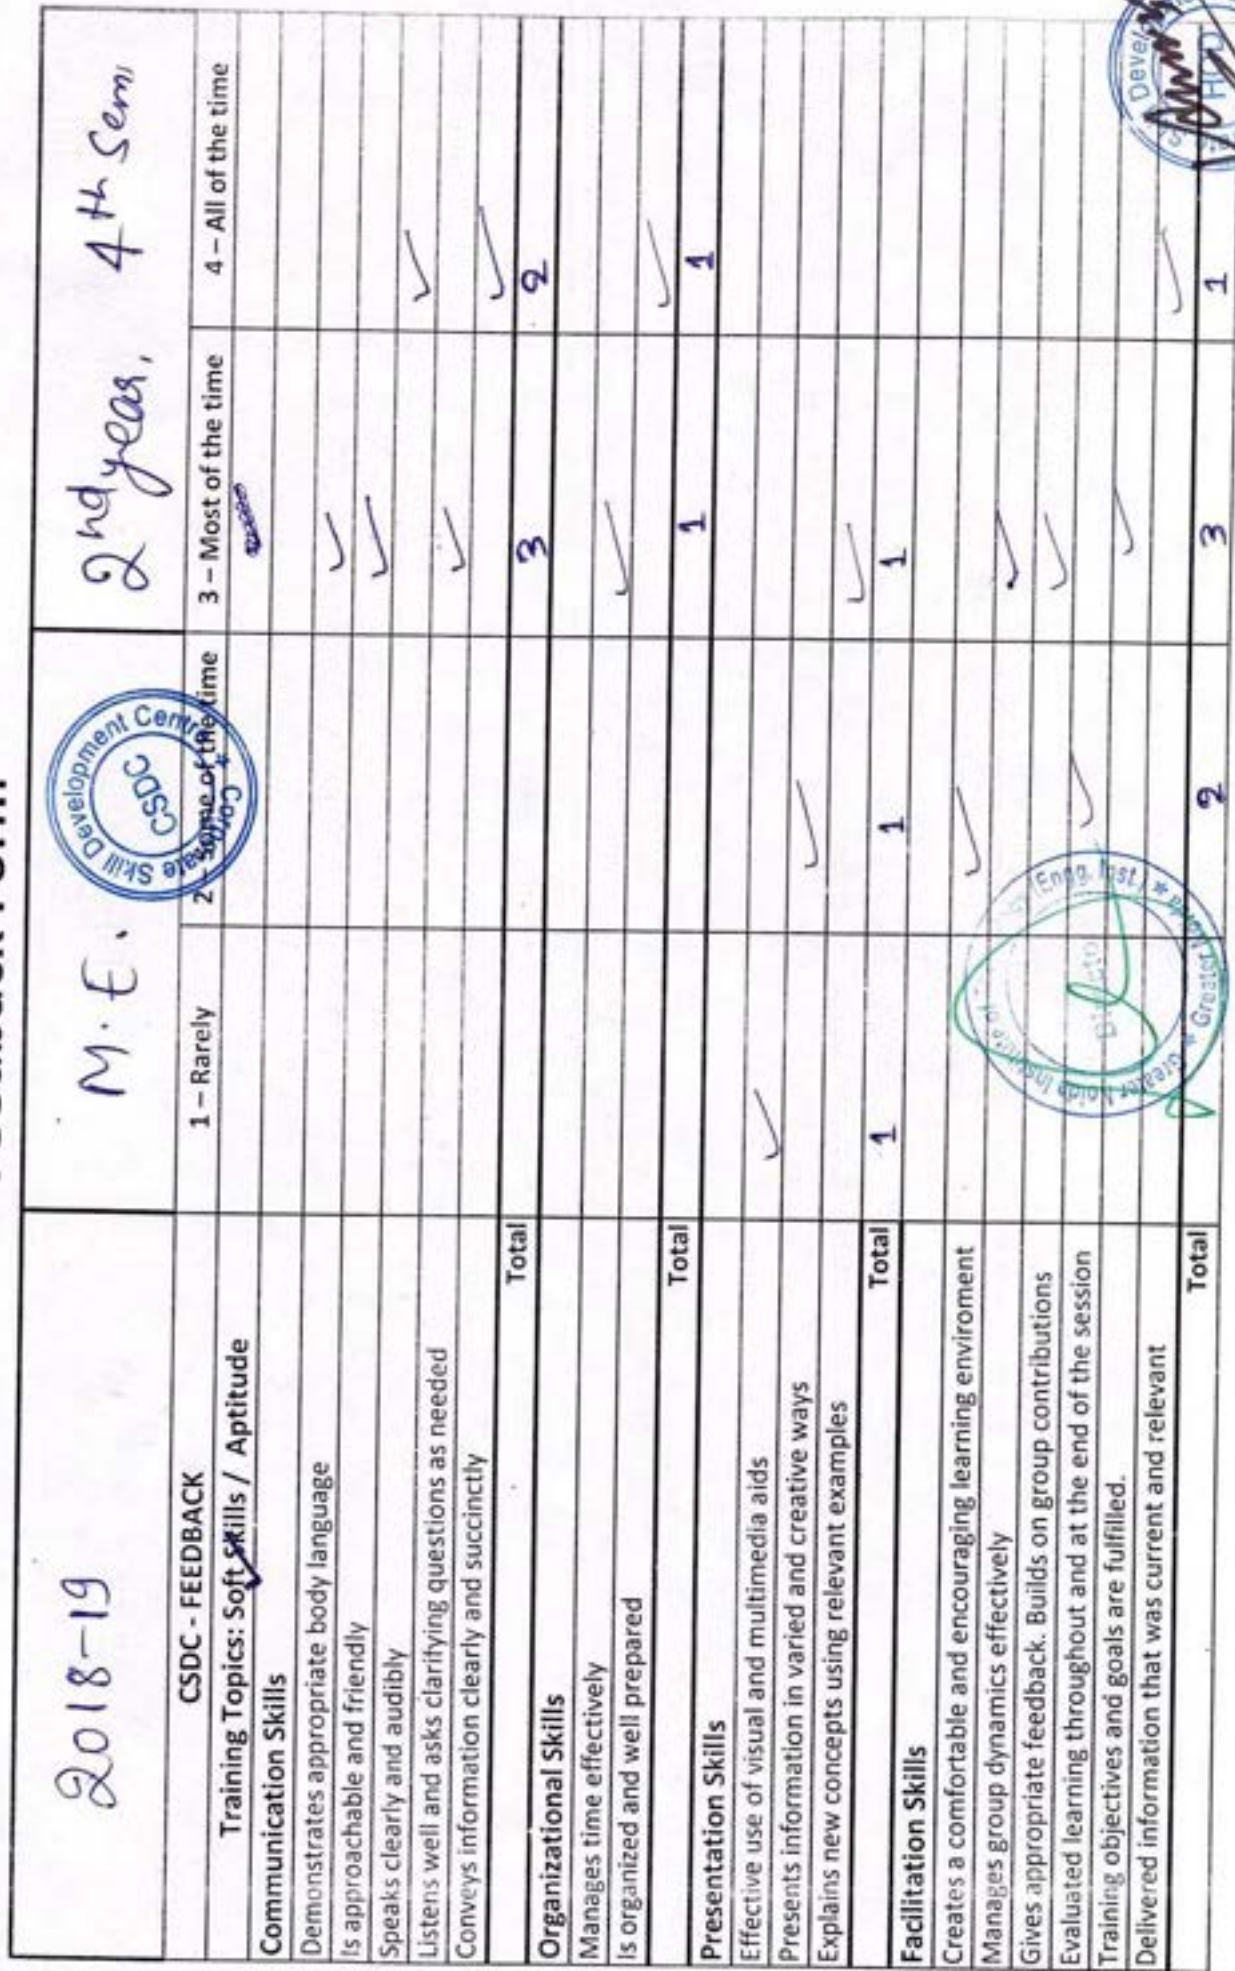 2018-19 M.E. 2nd year, 4th Sem,
CSDC - FEEDBACK 1 – Rarely 2 – Some of the time 3 – Most of the time 4 – All of the time
Corporate Skill Development Centre
CSDC
Training Topics: Soft Skills / Aptitude
Communication Skills
Demonstrates appropriate body language ✓
Is approachable and friendly ✓
Speaks clearly and audibly ✓
Listens well and asks clarifying questions as needed ✓
Conveys information clearly and succinctly ✓
Total 3 2
Organizational Skills
Manages time effectively ✓
Is organized and well prepared ✓
Total 1 1
Presentation Skills
Effective use of visual and multimedia aids ✓
Presents information in varied and creative ways ✓
Explains new concepts using relevant examples ✓
Total 1 1 1
Facilitation Skills
Creates a comfortable and encouraging learning enviroment ✓
Manages group dynamics effectively ✓
Gives appropriate feedback. Builds on group contributions ✓
Evaluated learning throughout and at the end of the session ✓
Training objectives and goals are fulfilled. ✓
Delivered information that was current and relevant ✓
Total 2 3 1
Greater Noida Institute of (Engg. Inst.) Greater Noida
Director
HOD